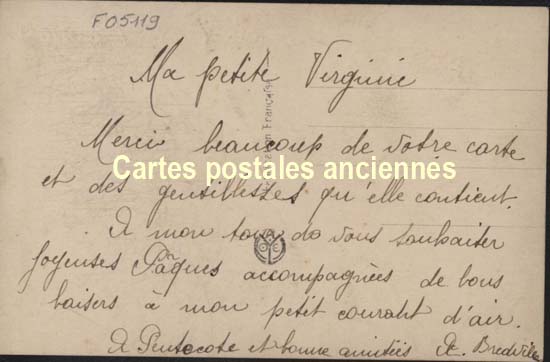 F05119
Ma petite Virginie
Merci beaucoup de votre carte
Cartes postales anciennes
et des gentillesses qu'elle contient.
A mon tour de vous souhaiter
joyeuses Pâques accompagnées de bons
baisers à mon petit courant d'air.
A Pentecote et bonne amitiés de Bredville